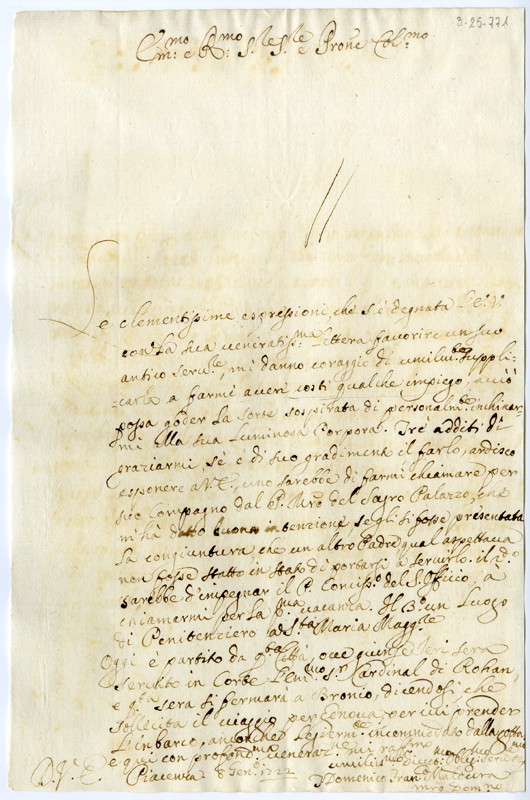 3-25-771
Em:mo e R:mo Sig.le Sig.le e Prone Col:mo
Le clementissime espressioni, che s'è degnata L'E.V.
con la sua veneratiss:ma lettera favorire un suo
antico serv.le, mi danno coraggio di umilm.te suppli-
-carla a farmi avere costì qualche impiego, acciò
possa goder la sorte sospirata di personalm.te inchinar-
mi alla sua Luminosa Porpora. Tre additi, di
graziarmi se è di suo gradimento il farlo, ardisco
esponere a V.E., uno sarebbe di farmi chiamare per
suo Compagno dal P. Mro del Sagro Palazzo, che
m'hà datto buona intenzione se gli si fosse presentata
la congiuntura, che un altro Padre qual aspettava
non fosse statto in stato di portarsi a servirlo. il 2.do
sarebbe d'impegnar il P. Comiss.o del S. Officio, a
chiamarmi per la p.ma vacanza. Il 3.o un Luogo
di Penitenziero a S.ta Maria Magg.re
Oggi è partito da q.ta Città, ove giunse ieri sera
servito in Corte l'Em.mo Sr. Cardinal di Rohan,
e q.ta sera si fermarà a Bronio, dicendosi che
sollecita il viaggio per Genova, per ivi prender
l'inbarco, ancorche legierm.te incommodato dalla gotta
e qui con profond.ma veneraz.ne mi rassegno
D. V. E.
Piacenza 8 Gen.o 1722
umiliss.mo Divot.mo Obl.mo Serv.re
F. Domenico Fran.co Mattera
Mro Dom.no